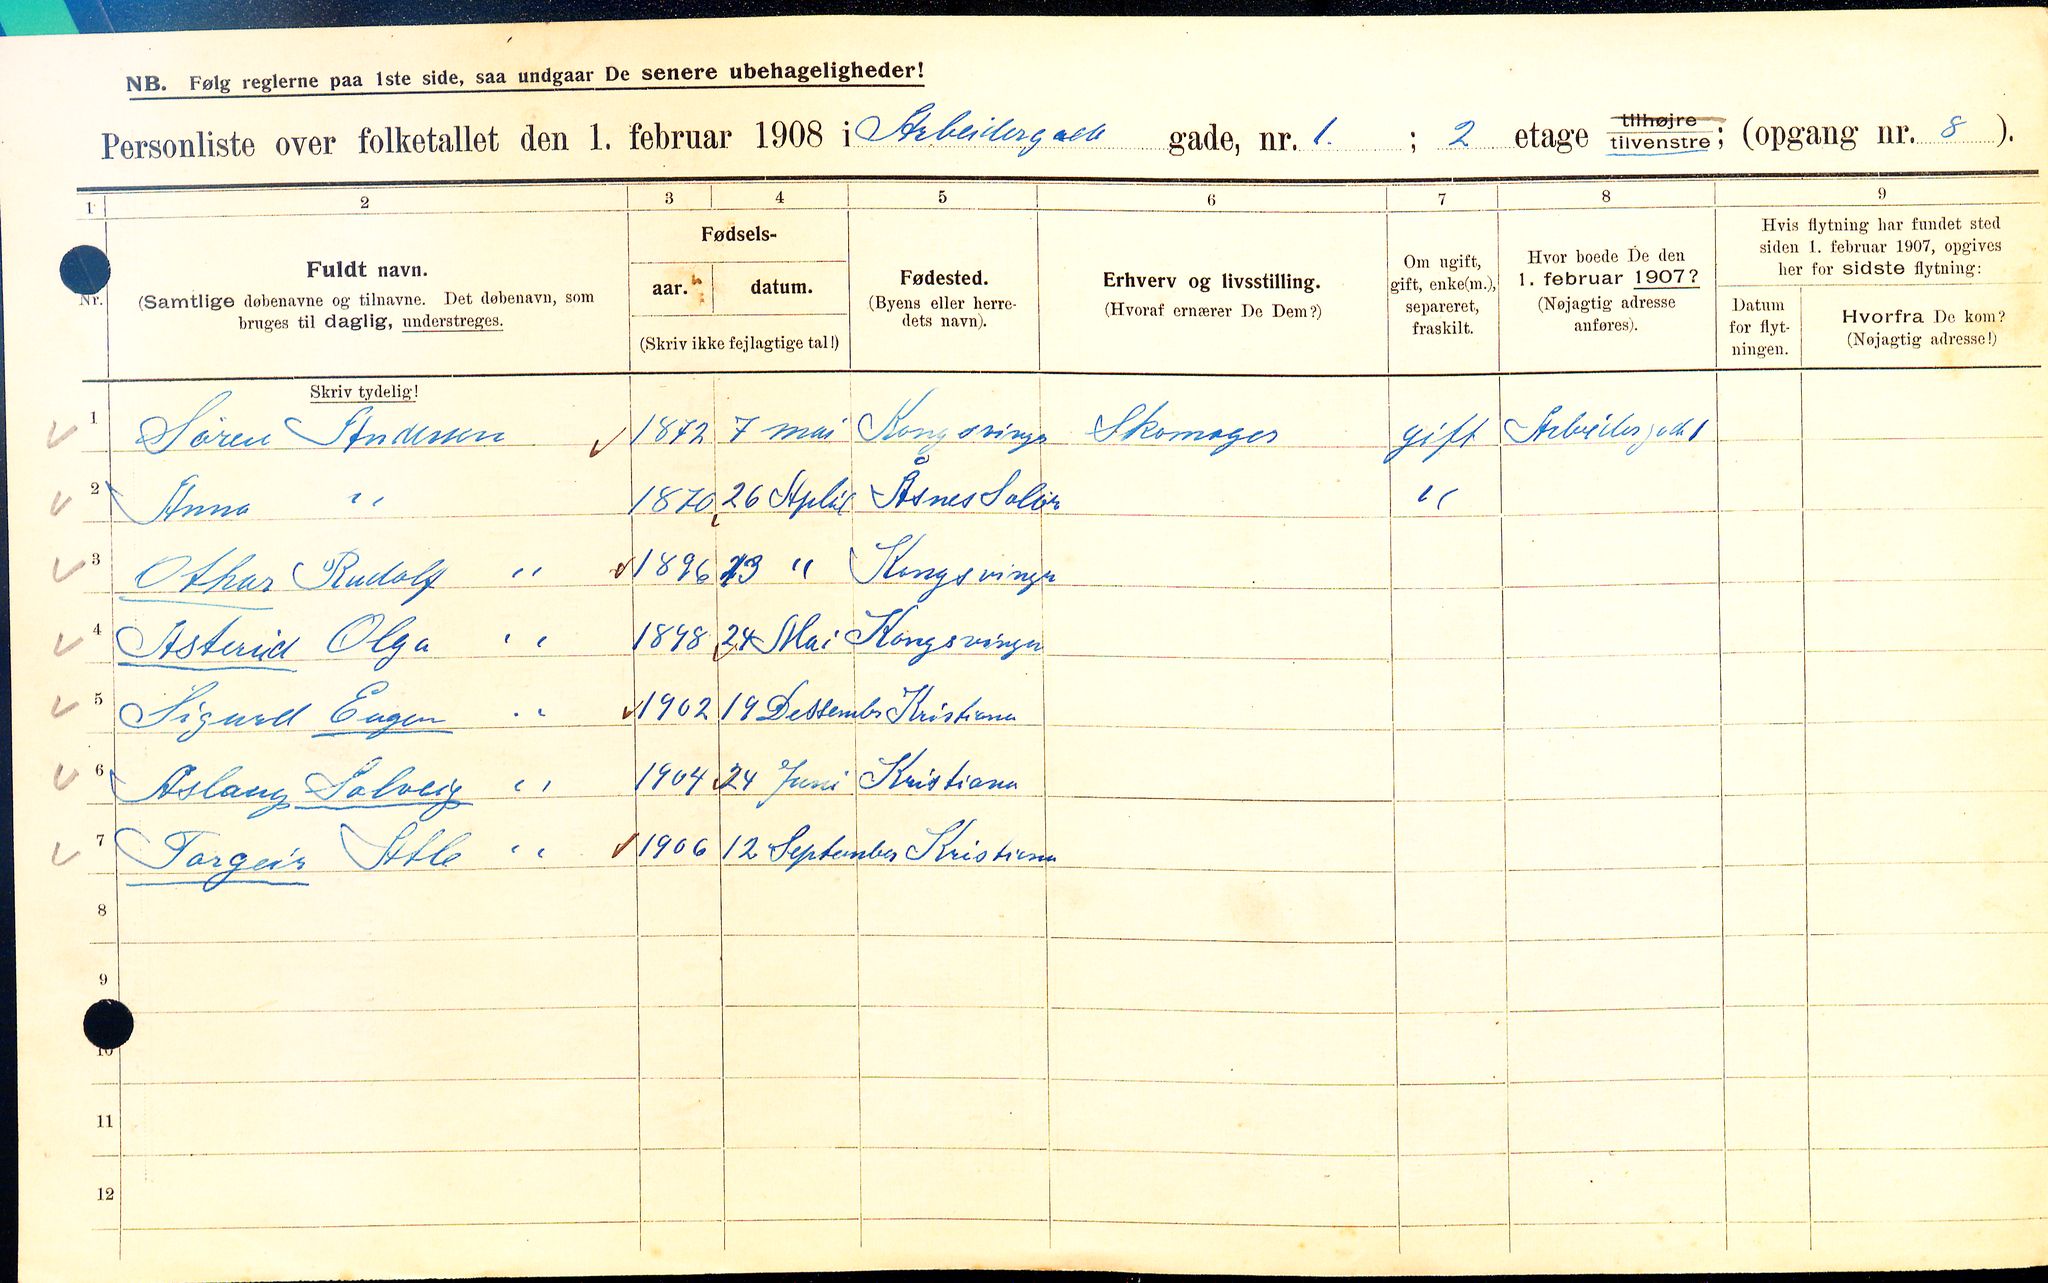 NB. Følg reglerne paa 1ste side, saa undgaar De senere ubehageligheder!
Personliste over folketallet den 1. februar 1908 i Arbeidergade gade, nr. 1. ; 2 etage tilhøjre tilvenstre; (opgang nr. 8 ).
1 2 3 4 5 6 7 8 9
Nr.
Fuldt navn.
(Samtlige døbenavne og tilnavne. Det døbenavn, som
bruges til daglig, understreges.
Skriv tydelig!
Fødsels-
aar. datum.
(Skriv ikke fejlagtige tal!)
Fødested.
(Byens eller herre-
dets navn).
Erhverv og livsstilling.
(Hvoraf ernærer De Dem?)
Om ugift,
gift, enke(m.),
separeret,
fraskilt.
Hvor boede De den
1. februar 1907?
(Nøjagtig adresse
anføres).
Hvis flytning har fundet sted
siden 1. februar 1907, opgives
her for sidste flytning:
Datum
for flyt-
ningen.
Hvorfra De kom?
(Nøjagtig adresse!)
1 Søren Andersen 1872 7 mai Kongsvinger Skomager gift Arbeidergade 1
2 Anna " 1870 26 April Åsnes Solør "
3 Othar Rudolf " 1896 13 " Kongsvinger
4 Asterid Olga " 1898 24 Mai Kongsvinger
5 Sigurd Eugen " 1902 19 Dessember Kristiana
6 Aslaug Solveig " 1904 24 Juni Kristiana
7 Torgeir Atle " 1906 12 September Kristiana
8
9
10
11
12